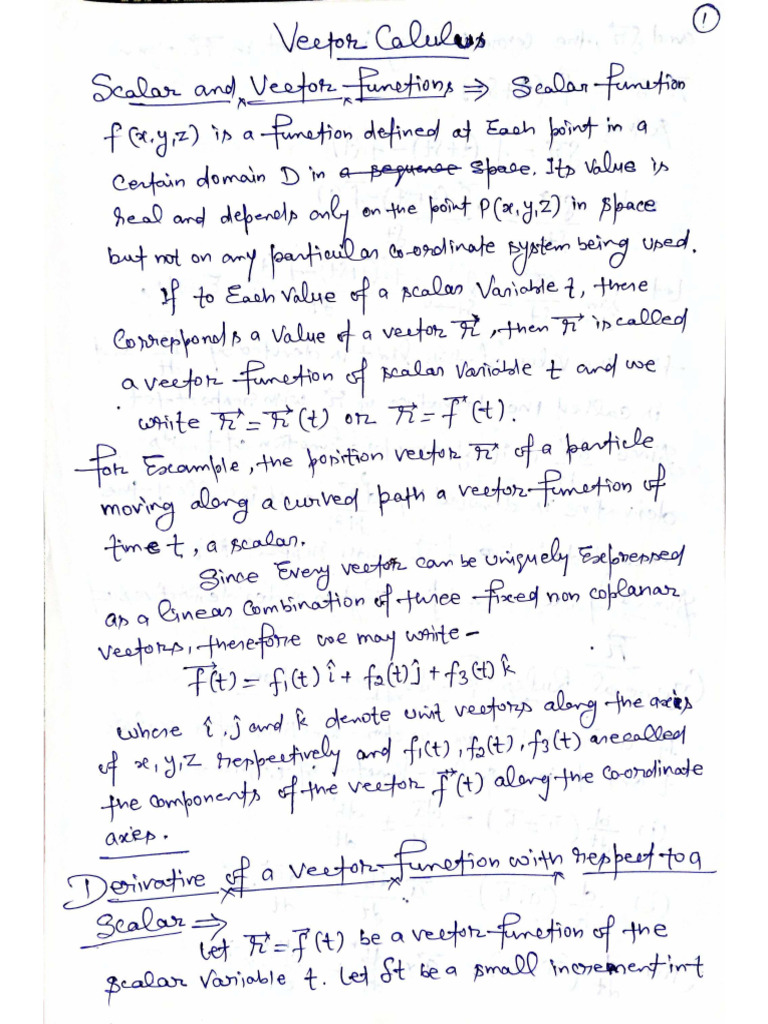 1
Vector Calulus
Scalar and Vector functions ⇒ Scalar function
f(x,y,z) is a function defined at Each point in a
Certain domain D in a sequence space. Its value is
real and depends only on the point P(x,y,z) in space
but not on any particular co-ordinate system being used.
If to Each value of a scalar Variable t, there
Corresponds a Value of a vector r⃗, then r⃗ is called
a vector function of scalar variable t and we
write r⃗ = r⃗(t) or r⃗ = f⃗(t).
for Example, the position vector r⃗ of a particle
moving along a curved path a vector function of
time t, a scalar.
Since Every vector can be uniquely Expressed
as a linear combination of three fixed non coplanar
vectors, therefore we may write -
f⃗(t) = f₁(t) î + f₂(t) ĵ + f₃(t) k̂
where î, ĵ and k̂ denote unit vectors along the axis
of x,y,z respectively and f₁(t), f₂(t), f₃(t) are called
the components of the vector f⃗(t) along the co-ordinate
axes.
Derivative of a vector function with respect to a
Scalar ⇒
Let r⃗ = f⃗(t) be a vector function of the
scalar variable t. Let δt be a small increment in t